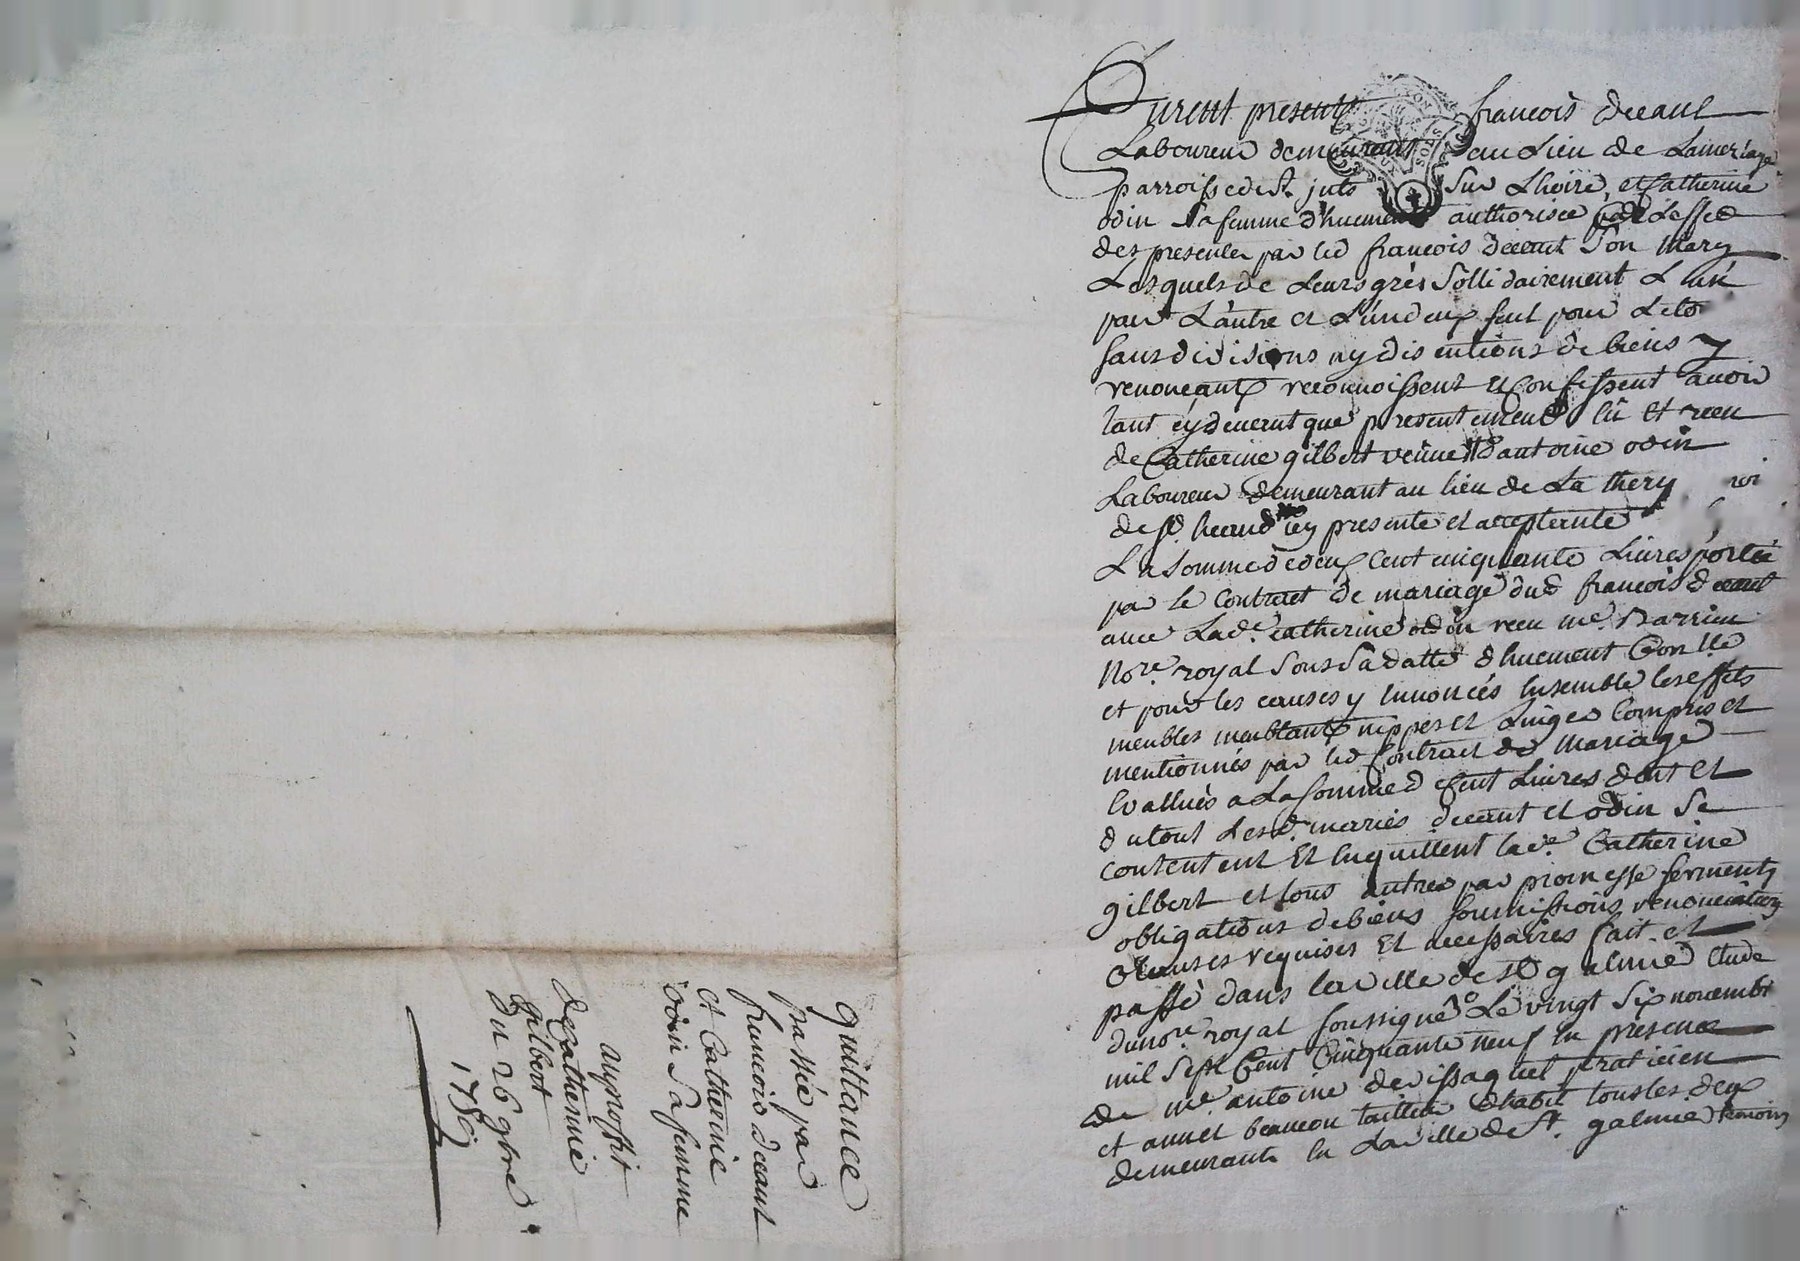 Furent presents francois deeaut
Laboureur demeurant au Lieu de Lameriage
parroisse de st. just sur Lhoire, et Catherine
odin sa femme dhuement authorisée a Leffed
des presentes par led francois deeaut son Mary
Lesquels de Leurs grés sollidairement L'un
pour L'autre et L'un deux seul pour Le to
sans divisions ny discutions de biens y
renonçants reconnoissent et Confessent avoir
tant cy devent que presentement eü et receu
de Catherine gilbert veuve d'antoine odin
Laboureur demeurant au lieu de La thery
de st. heand icy presente et acceptante
La somme de deux Cent cinquante Livres portée
par le Contract de mariage dud francois deeaut
avec Lade. Catherine odin receu me. Barrieu
Nore. royal sous sa datte dhuement Conllé
et pour les causes y ennoncés ensemble les effets
meubles meublants nippes et Linges Compris et
mentionnés par led Contrait de Mariage
Evallués a La somme d Cent Livres dont et
du tout Lesd. mariés deeaut et odin se
contentent Et enquittent lade. Catherine
gilbert et tous autres par promesse serments
obligations de biens soumissions renonciations
Clauses requises Et necessaires fait et
passé dans la ville de st galmié Etude
du nore. royal soussigné Le vingt six novembre
mil sept Cent Cinquante neuf en presence
de me. antoine devissaguet praticien
et annet beaucou tailleur dhabit tous les deux
demeurants en La ville de st. galmié temoins
quittance
passée par
francois deeaut
et Catherine
odin sa femme
au proffit
de Catherine
gilbert
du 26 9bre
1759